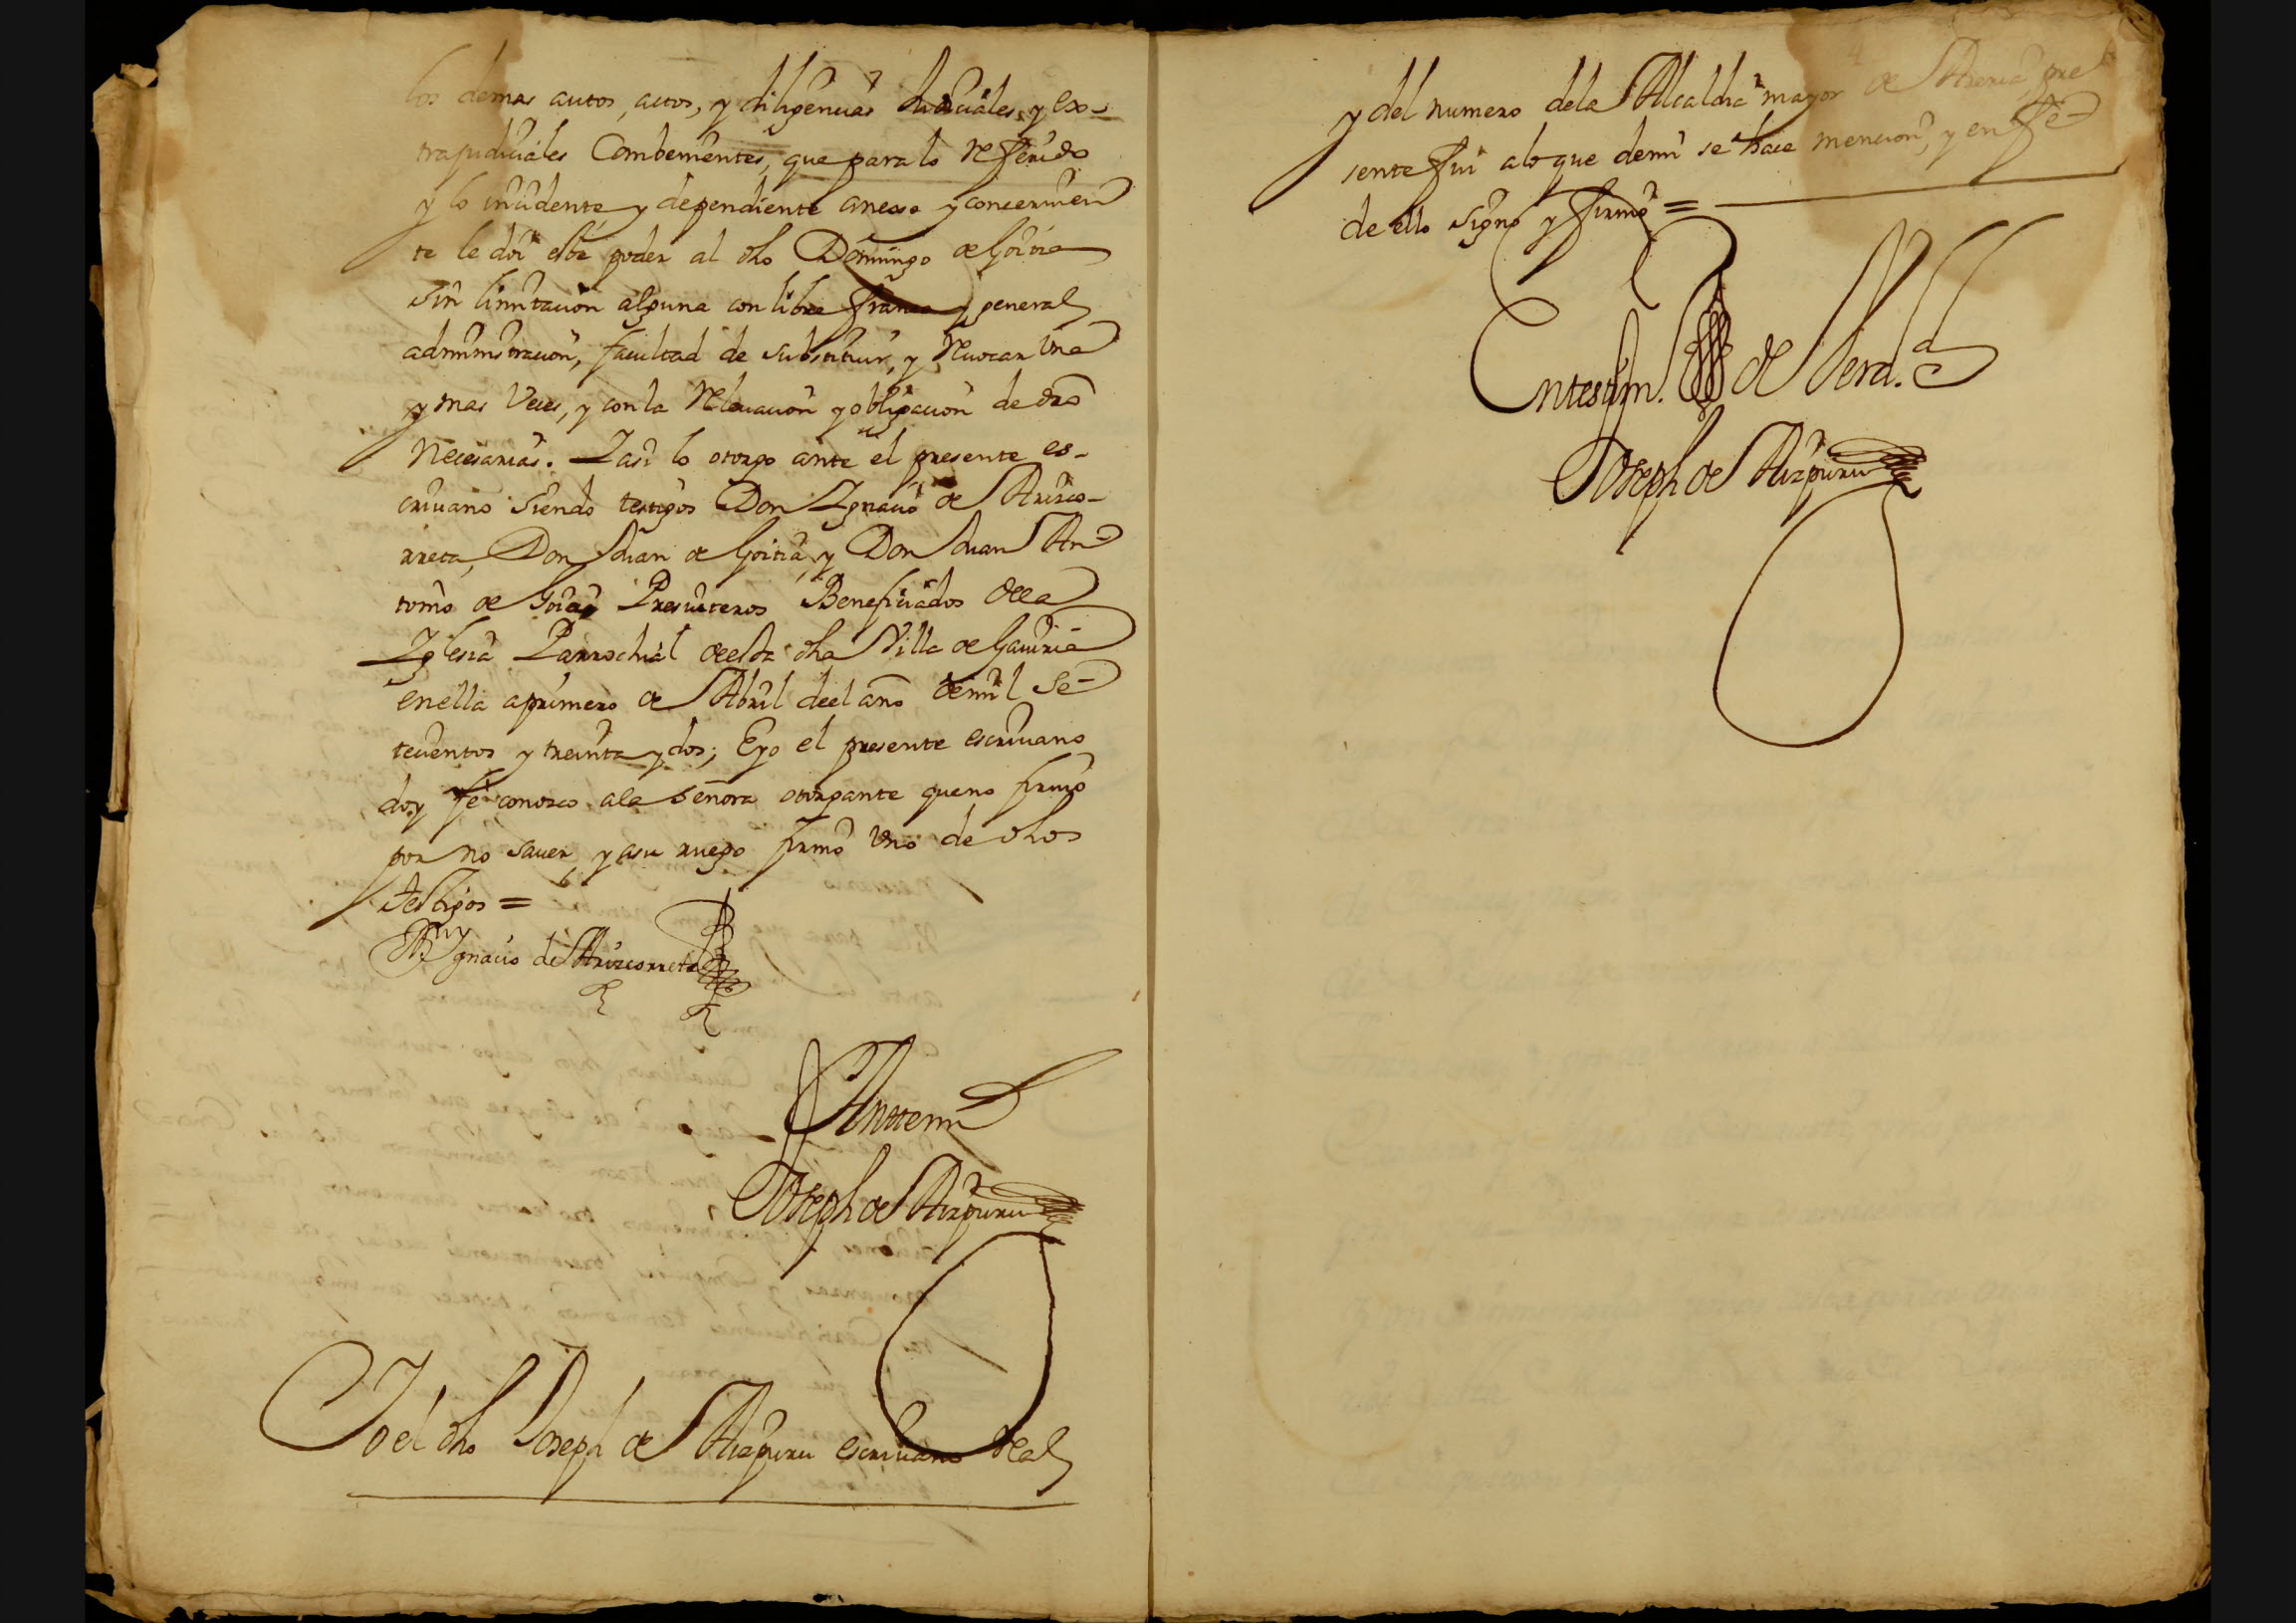 los demas autos, actos, y diligencias Judiciales, y ex-
trajudiciales Combenientes, que para lo Referido
y lo incidente y dependiente anexo y concernien
te le doi este poder al dho Domingo de Goitia
sin limitacion alguna con libre franca y general
administracion, facultad de substituir, y Revocar Una
y mas Veces, y con la Relevacion y obligacion de dro
Necesarias. Y asi lo otorgo ante el presente es-
crivano siendo testigos Don Ygnacio de Arizco-
rreta, Don Juan de Goitia, y Don Juan An
tonio de Presviteros Beneficiados de la
Yglesia Parrochial de esta dha Villa de Gaviria
en ella a primero de Abril de el año de mil Se-
tecientos y treinta y dos; E yo el presente escrivano
doy fe conozco a la señora otorgante que no firmo
por no saver, y a su ruego firmo Uno de dhos
testigos =
Ygnacio de Arizcorreta
Ante mi
Joseph de Aizpuru
Yo el dho Joseph de Aizpuru escrivano Real
y del numero de la Alcaldia mayor de Areria, pre
sente fui a lo que de mi se hace mencion, y en fe
de ello signo y firmo =
En testim. de Verd.
Joseph de Aizpuru